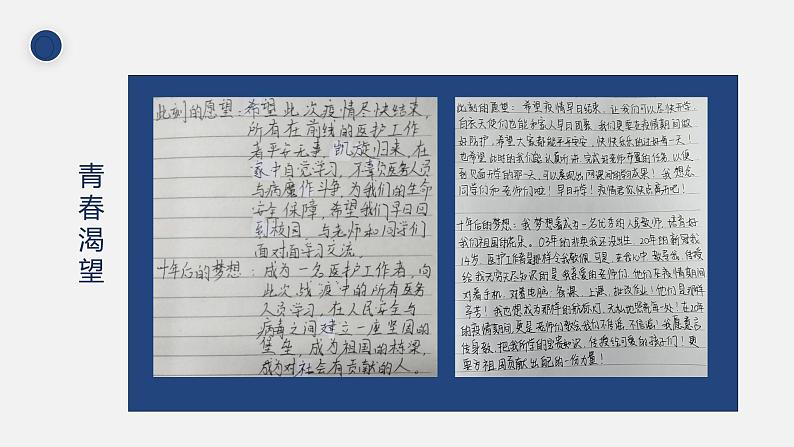 青春渴望
此刻的愿望：希望此次疫情尽快结束，
所有在前线的医护工作
者平安无事，凯旋归来，在
家中自觉学习，不辜负医务人员
与病魔作斗争，为我们的生命
安全保障，希望我们早日回
到校园，与老师和同学们
面对面学习交流。
十年后的梦想：成为一名医护工作者，向
此次战"疫"中的所有医务
人员学习，在人民安全与
病毒之间建立一座坚固的
堡垒，成为祖国的栋梁，
成为对社会有贡献的人。
此刻的愿望：希望疫情早日结束，让我们可以尽快开学，
白衣天使们也能和家人早日团聚，我们更要在疫情期间做
好防护，希望大家都能平平安安，快快乐乐的过好每一天！
也希望此时的我们能认真听讲，完成好老师布置的任务，以便
到见面开学的那一天，可以展现出网课间的学习成果！我想念
同学们和老师们啦！早日开学！疫情君你快点离开吧！
十年后的梦想：我梦想着成为一名优秀的人民教师，培育好
我们祖国的花朵。03年的非典我还没出生，20年的新冠我
14岁，医护工作者是那样令我敬佩，可是，在我心中，教导我，传授
给我无穷尽知识的是我亲爱的老师们，他们在疫情期间
对着手机，对着电脑，备课，上课，批改作业！他们是多么辛
辛苦！我也想成为那样的
的疫情期间，更是老师们教会我们不信谣，不传谣！我愿意言
传身教，把我所学的宝贵知识，传授给可爱的孩子们！更
要为祖国贡献出自己的一份力量！